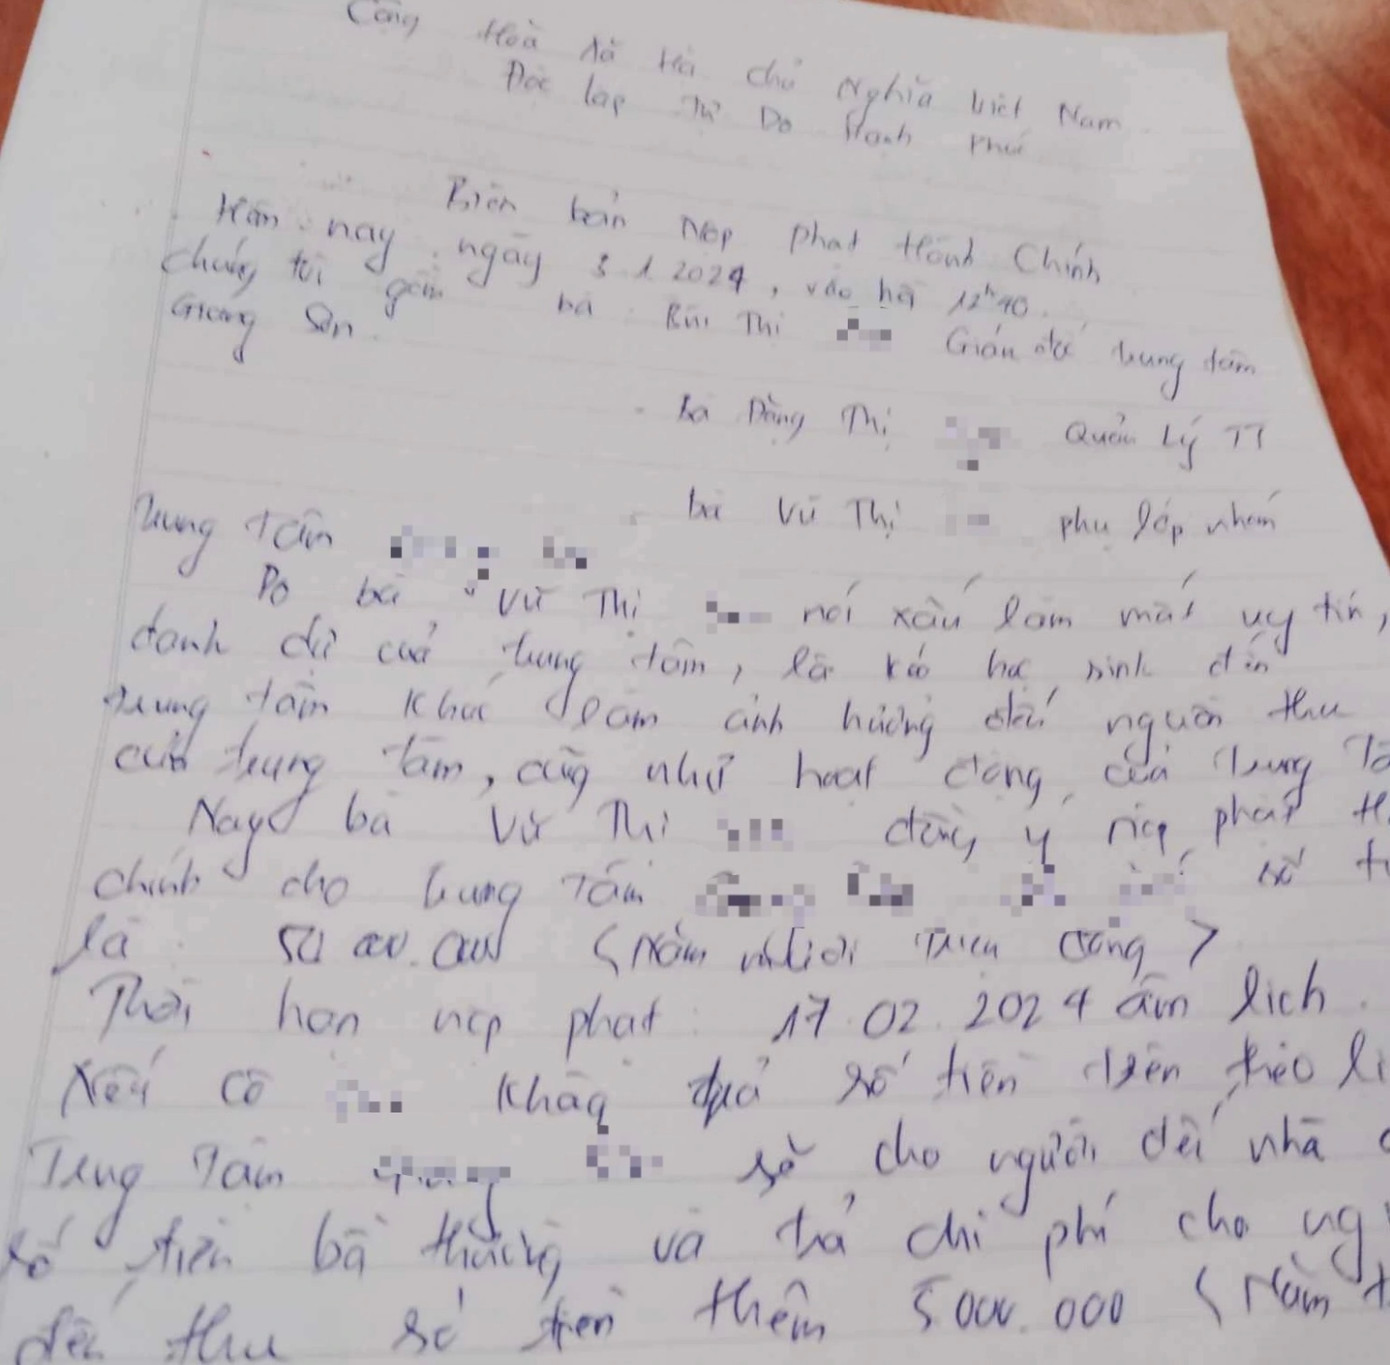 Cộng Hoà Xã Hà chủ Nghĩa Việt Nam
Độc lập Tự Do Hạnh Phúc
Biên bản nộp phạt Hành Chính
Hôm nay ngày 3.1.2024, vào hồi 12h40.
chúng tôi gồm bà Bùi Thị Giám đốc trung tâm
Giang Sơn.
- Bà Đặng Thị Quản Lý TT
- bà Vũ Thị phụ lớp nhóm
trung tâm
Do bà Vũ Thị nói xấu làm mất uy tín,
danh dự của trung tâm, lôi kéo học sinh đến
trung tâm khác làm ảnh hưởng đến nguồn thu
của trung tâm, cũng như hoạt động của trung Tâ
Nay bà Vũ Thị đồng ý nộp phạt
chính cho trung Tâm số
là 50.000.000 (Năm mươi Triệu đồng)
Thời hạn nộp phạt: 17.02.2024 âm lịch.
Nếu cô không trả số tiền trên theo
Trung Tâm sẽ cho người đến nhà
số tiền bồi thường và trả chi phí cho ng
đến thu số tiền thêm 5000.000 (Năm t